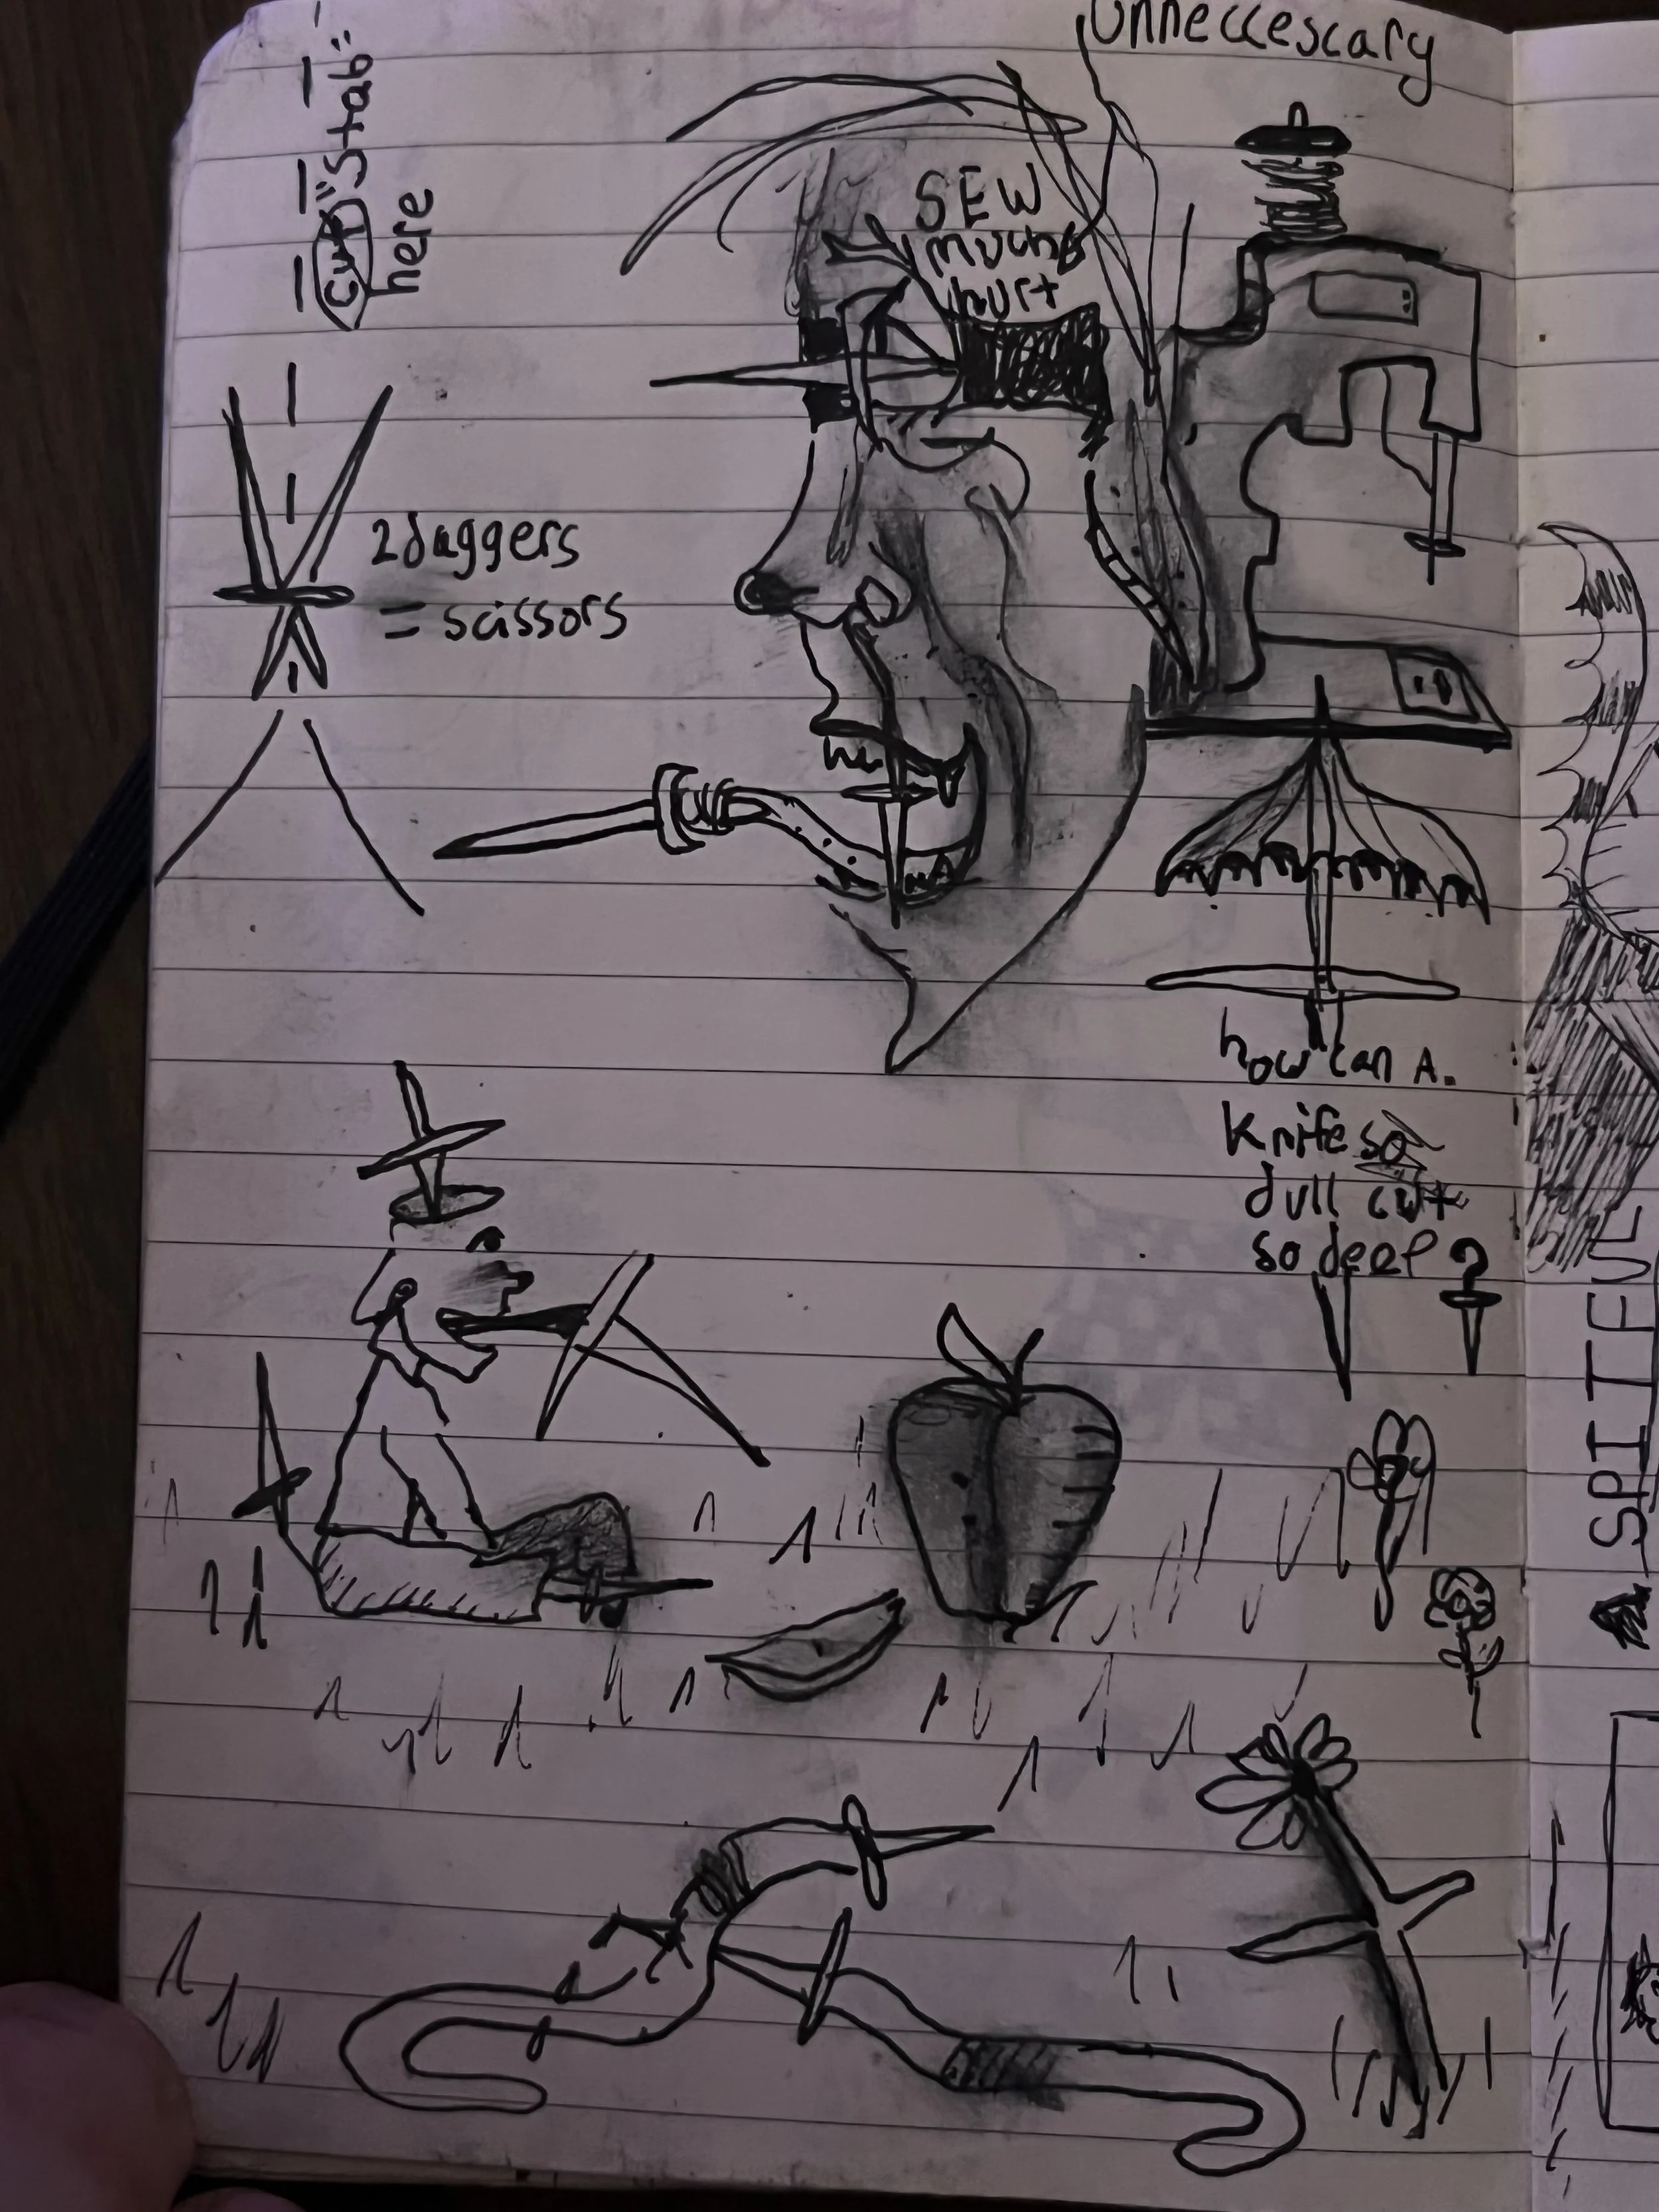 Unneccescary
cut "Stab"
here
SEW
much
hurt
2 daggers
= scissors
how can A.
knife so
dull cut
so deep ?
SPITEFUL